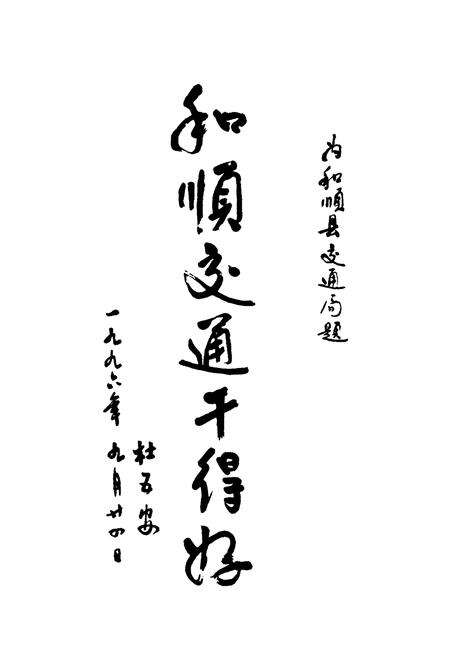 为和顺县交通局题
和順交通干得好
杜五安
一九九六年九月廿四日